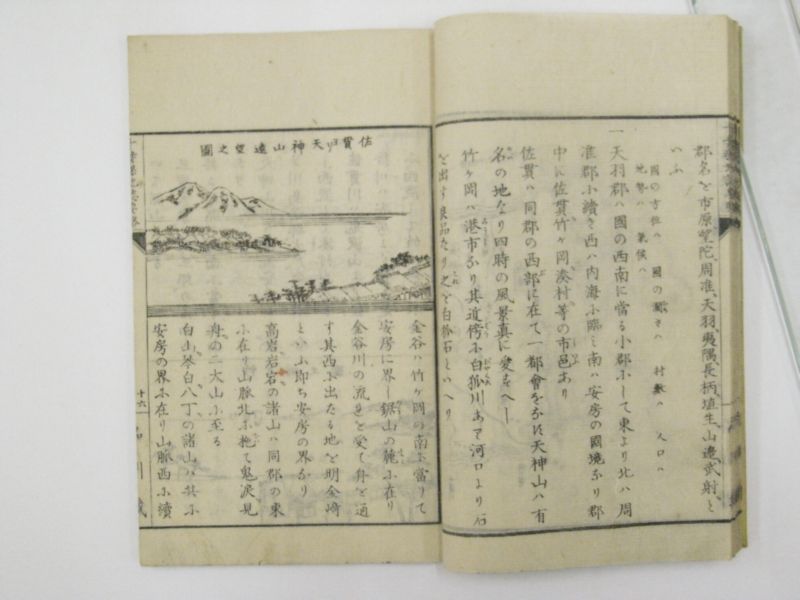 郡名を市原、望陀、周准、天羽、夷隅、長柄、埴生、山邊、武射、と
いふ
國の方位ハ 國の廣さハ 村數ハ 人口ハ
地勢ハ 氣候ハ
一天羽郡ハ國の西南に當る小郡ふして東より北ハ周
准郡ふ續き西ハ内海ふ臨ミ南ハ安房の國境なり郡
中に佐貫竹ヶ岡湊村等の市邑あり
佐貫ハ同郡の西部に在て一都會をなせり天神山ハ有
名の地なり四時の風景真に愛すへし
竹ヶ岡ハ港市なり其近傍ふ白狐川あり河口より石
を出す良品たり之を白狐石といへり
佐貫ヨリ天神山遠望之圖
金谷ハ竹ヶ岡の南ふ當りて
安房に界し鋸山の麓ふ在り
金谷川の流きを受て舟を通
す其西ふ出たる地を明金崎
といふ即ち安房の界なり
高岩岩宕の諸山ハ同郡の東
ふ在り山脈北ふ抱て鬼淚見
舟の二大山ふ至る
白山琴白八丁の諸山ハ共ふ
安房の界ふ在り山脈西ふ續
十六